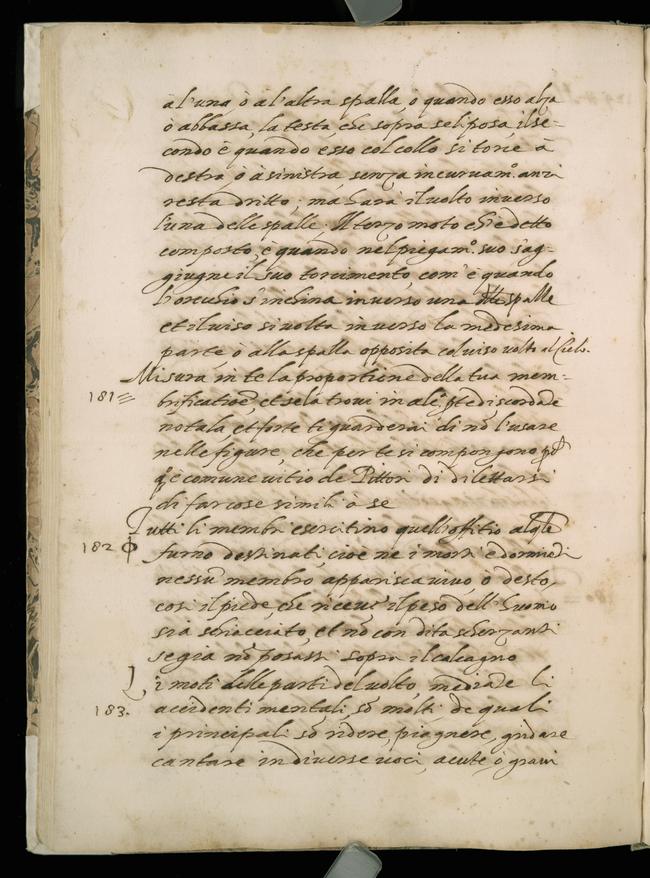 a l'una ò à l'altra spalla, o quando esso alza
ò abbassa, la testa, che sopra se li posa, il se-
condo è quando esso col collo si torce a
destra, ò à sinistra senza incuruam.o anzi
resta dritto; ma harà il uolto inuerso
l'una delle spalle. Il terzo moto ch'è detto
composto, è quando nel piegam.o suo s'ag-
giugne il suo torcimento, com'è quando
l'orecchio s'inchina inuerso una delle spalle
et il uiso si uolta inuerso la medesima
parte, ò alla spalla opposita col uiso uolto al Cielo.
Misura in te la proportione della tua mem-
181 brificatioe, et se la troui in alc. pte discordãte
notala, et forte ti guarderai di nõ l'usare
nelle figure, che per te si compongono
è comune uitio de Pittori di dilettarsi
di far cose simili à se
Tutti li membri esercitino quell'offitio al qle
182 furno destinati, cioe ne i morti è dormiẽti
nessũ membro apparisca uiuo, o desto,
cosi il piede, che riceue il peso dell'huomo
sia schiacciato, et nõ con dita scherzanti
se gia nõ posassi sopra il calcagno
Li moti delle parti del uolto, mediãte li
183. accidenti mentali, sõ molti, de quali
i principali sõ ridere, piagnere, gridare
cantare in diuerse uoci, acute, ò graui